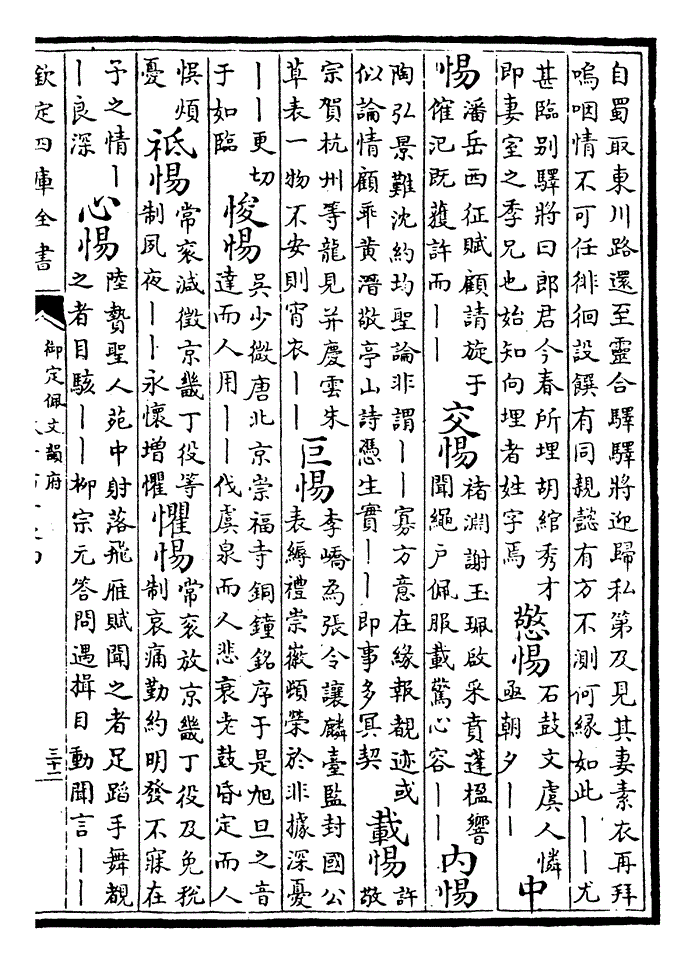 自蜀取東川路還至靈合驛驛將迎歸私第及見其妻素衣再拜
嗚咽情不可任徘徊設饌有同親懿有方不測何緣如此｜｜尤
甚臨别驛將曰郎君今春所埋胡綰秀才
即妻室之季兄也始知向埋者姓字焉
慜惕
石鼓文虞人憐
亟朝夕｜｜
中
惕
潘岳西征賦顧請旋于
傕汜既獲許而｜｜
交惕
褚淵謝玉珮啟采賁蓬楹響
聞繩户佩服載驚心容｜｜
内惕
陶弘景難沈約均聖論非謂｜｜寡方意在緣報覩迹或
似論情顧乖黄溍敬亭山詩慿生實｜｜即事多冥契
載惕
許
敬
宗賀杭州等龍見并慶雲朱
草表一物不安則宵衣｜｜
巨惕
李嶠為張令讓麟臺監封國公
表縟禮崇徽頻榮於非據深憂
｜｜更切
于如臨
悛惕
吴少微唐北京崇福寺銅鐘銘序于是旭旦之音
達而人用｜｜伐虞泉而人悲衰老鼓昏定而人
悮煩
憂
祗惕
常衮減徵京畿丁役等
制夙夜｜｜永懷增懼
懼惕
常衮放京畿丁役及免税
制哀痛勤約明發不寐在
子之情｜
｜良深
心惕
陸贄聖人苑中射落飛雁賦聞之者足蹈手舞覩
之者目駭｜｜柳宗元答問遇揖目動聞言｜｜
欽定四庫全書
御定佩文韻府
三十二